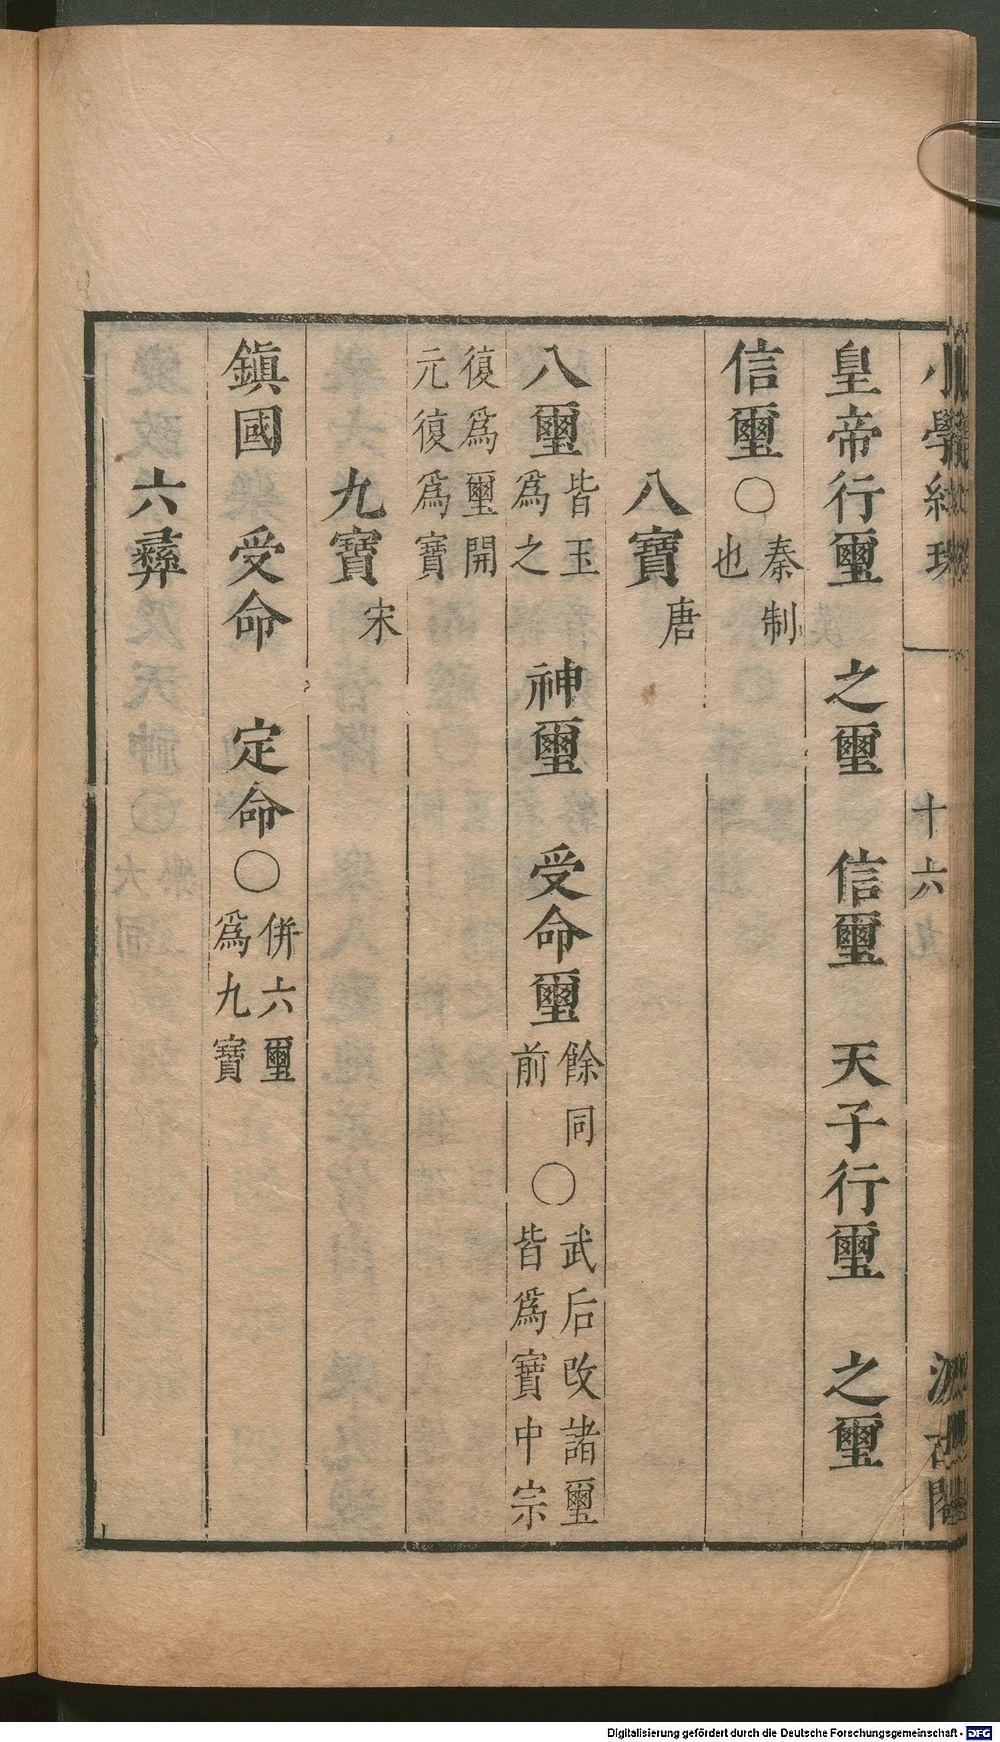 小學紺珠 十六 汲古閣
皇帝行璽 之璽 信璽 天子行璽 之璽
信璽〇秦制也
八寶唐
八璽皆玉爲之 神璽 受命璽餘同前〇武后改諸璽皆爲寶中宗
復爲璽開元復爲寶
九寶宋
鎭國 受命 定命〇併六璽爲九寶
六彝
Digitalisierung gefördert durch die Deutsche Forschungsgemeinschaft - DFG